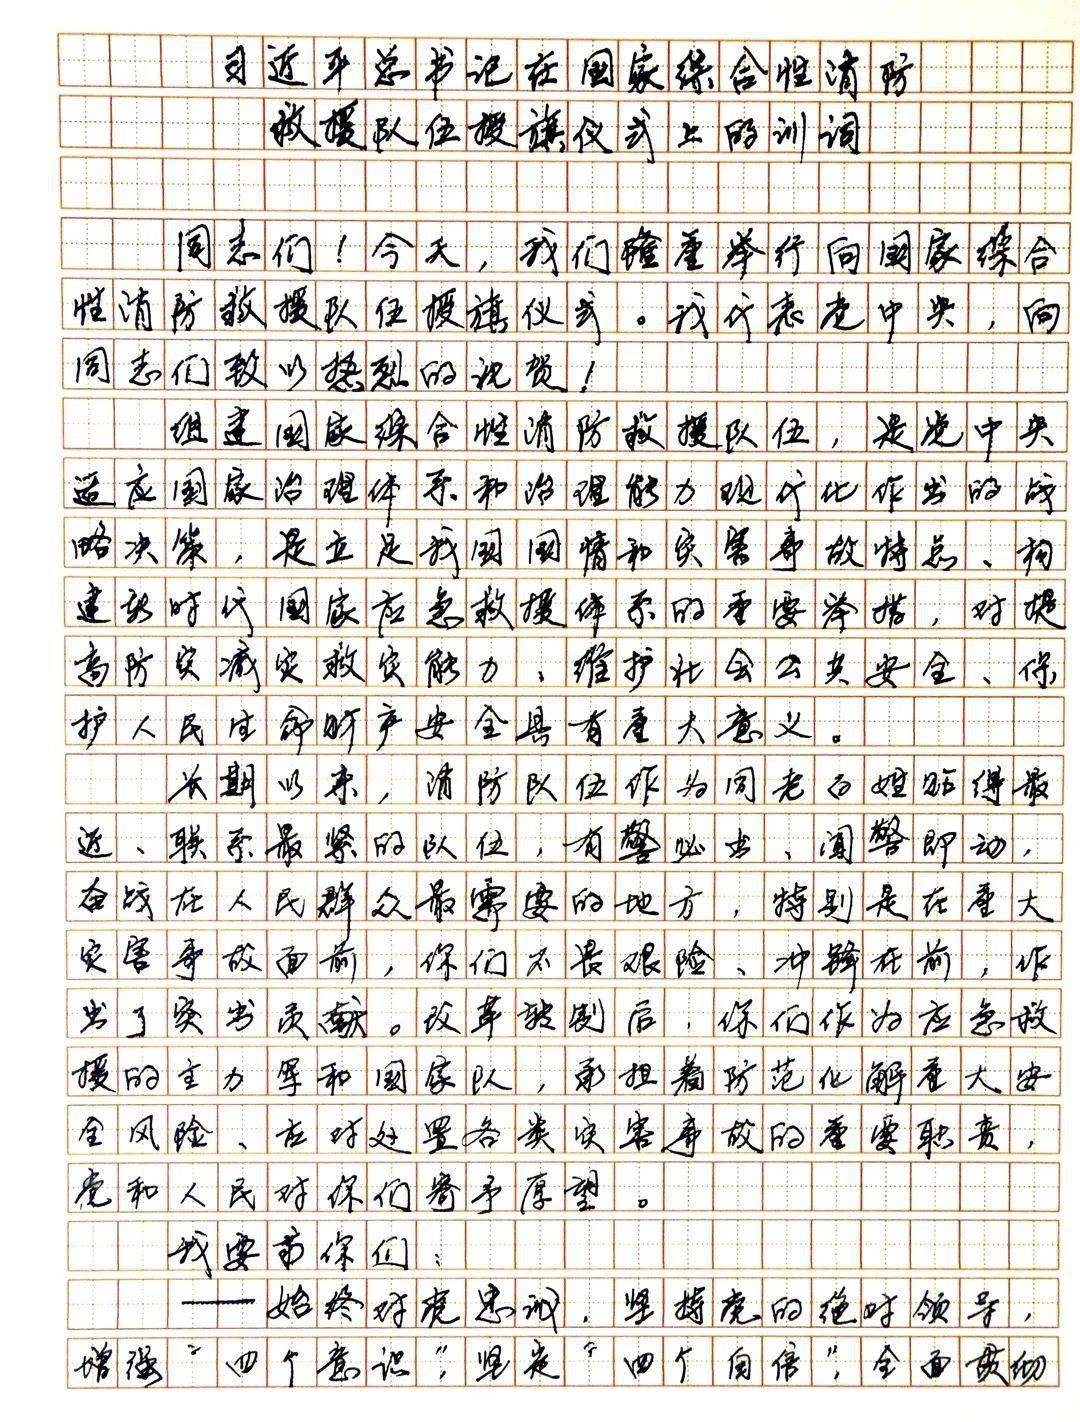 习近平总书记在国家综合性消防
救援队伍授旗仪式上的训词
同志们！今天，我们隆重举行向国家综合
性消防救援队伍授旗仪式。我代表党中央，向
同志们致以热烈的祝贺！
组建国家综合性消防救援队伍，是党中央
适应国家治理体系和治理能力现代化作出的战
略决策，是立足我国国情和灾害事故特点、构
建新时代国家应急救援体系的重要举措，对提
高防灾减灾救灾能力、维护社会公共安全、保
护人民生命财产安全具有重大意义。
长期以来，消防队伍作为同老百姓贴得最
近、联系最紧的队伍，有警必出、闻警即动，
奋战在人民群众最需要的地方，特别是在重大
灾害事故面前，你们不畏艰险、冲锋在前，作
出了突出贡献。改革转制后，你们作为应急救
援的主力军和国家队，承担着防范化解重大安
全风险、应对处置各类灾害事故的重要职责，
党和人民对你们寄予厚望。
我要求你们：
——始终对党忠诚，坚持党的绝对领导，
增强“四个意识”，坚定“四个自信”，全面贯彻